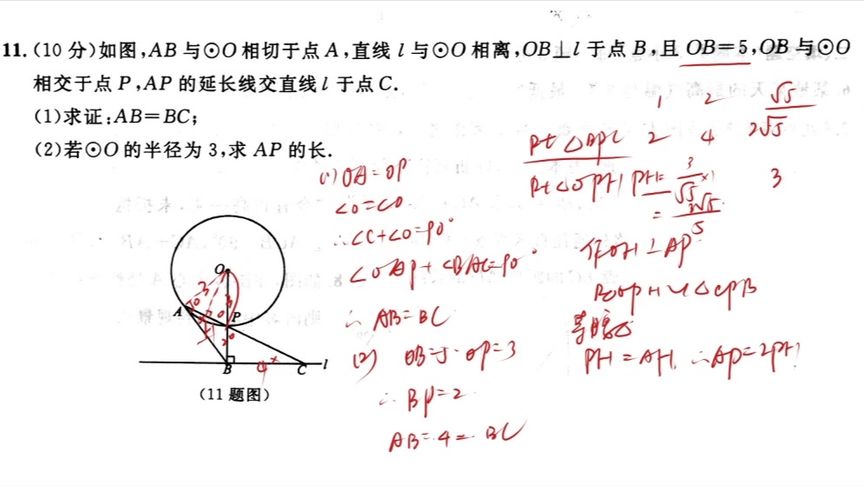 11.(10 分)如图,AB 与⊙O 相切于点 A,直线 l 与⊙O 相离,OB⊥l 于点 B,且 OB=5,OB 与⊙O
相交于点 P,AP 的延长线交直线 l 于点 C.
(1)求证:AB=BC;
(2)若⊙O 的半径为 3,求 AP 的长.
1 2 √5
Rt△BPC 2 4 2√5
Rt△OPH PH= 3/√5 ×1 3
= 3√5/5
(1) OA=OP
∠C+∠O=90°
∠OAP+∠BAC=90°
∴ AB=BC
(2) OB=5 OP=3
∴ BP=2
AB=4=BC
作OH⊥AP
等腰△
PH=AH ∴AP=2PH
O
3
A
P
2
B
4
C
l
(11 题图)